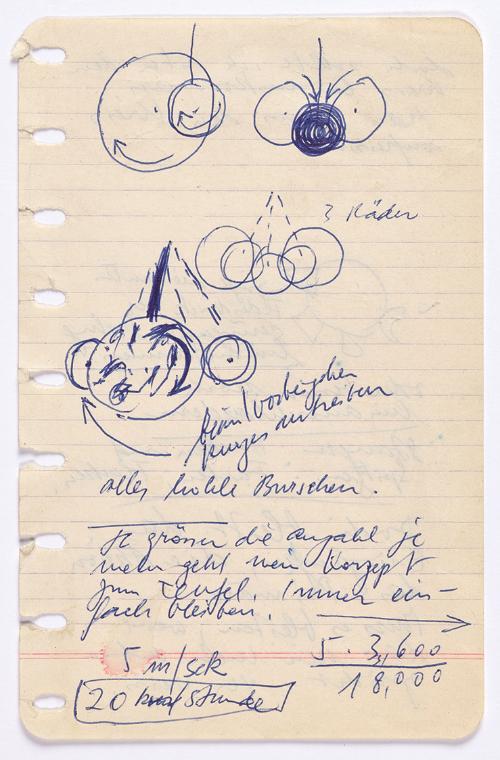 3 Räder
beim Vorbeigehen
kurzes antreiben
alles hohle Burschen.
Je grösser die Anzahl je
mehr geht mein Konzept
zum Teufel. Immer ein-
fach bleiben.
5 m/sek
5 · 3,600
18,000
20 km/Stunde